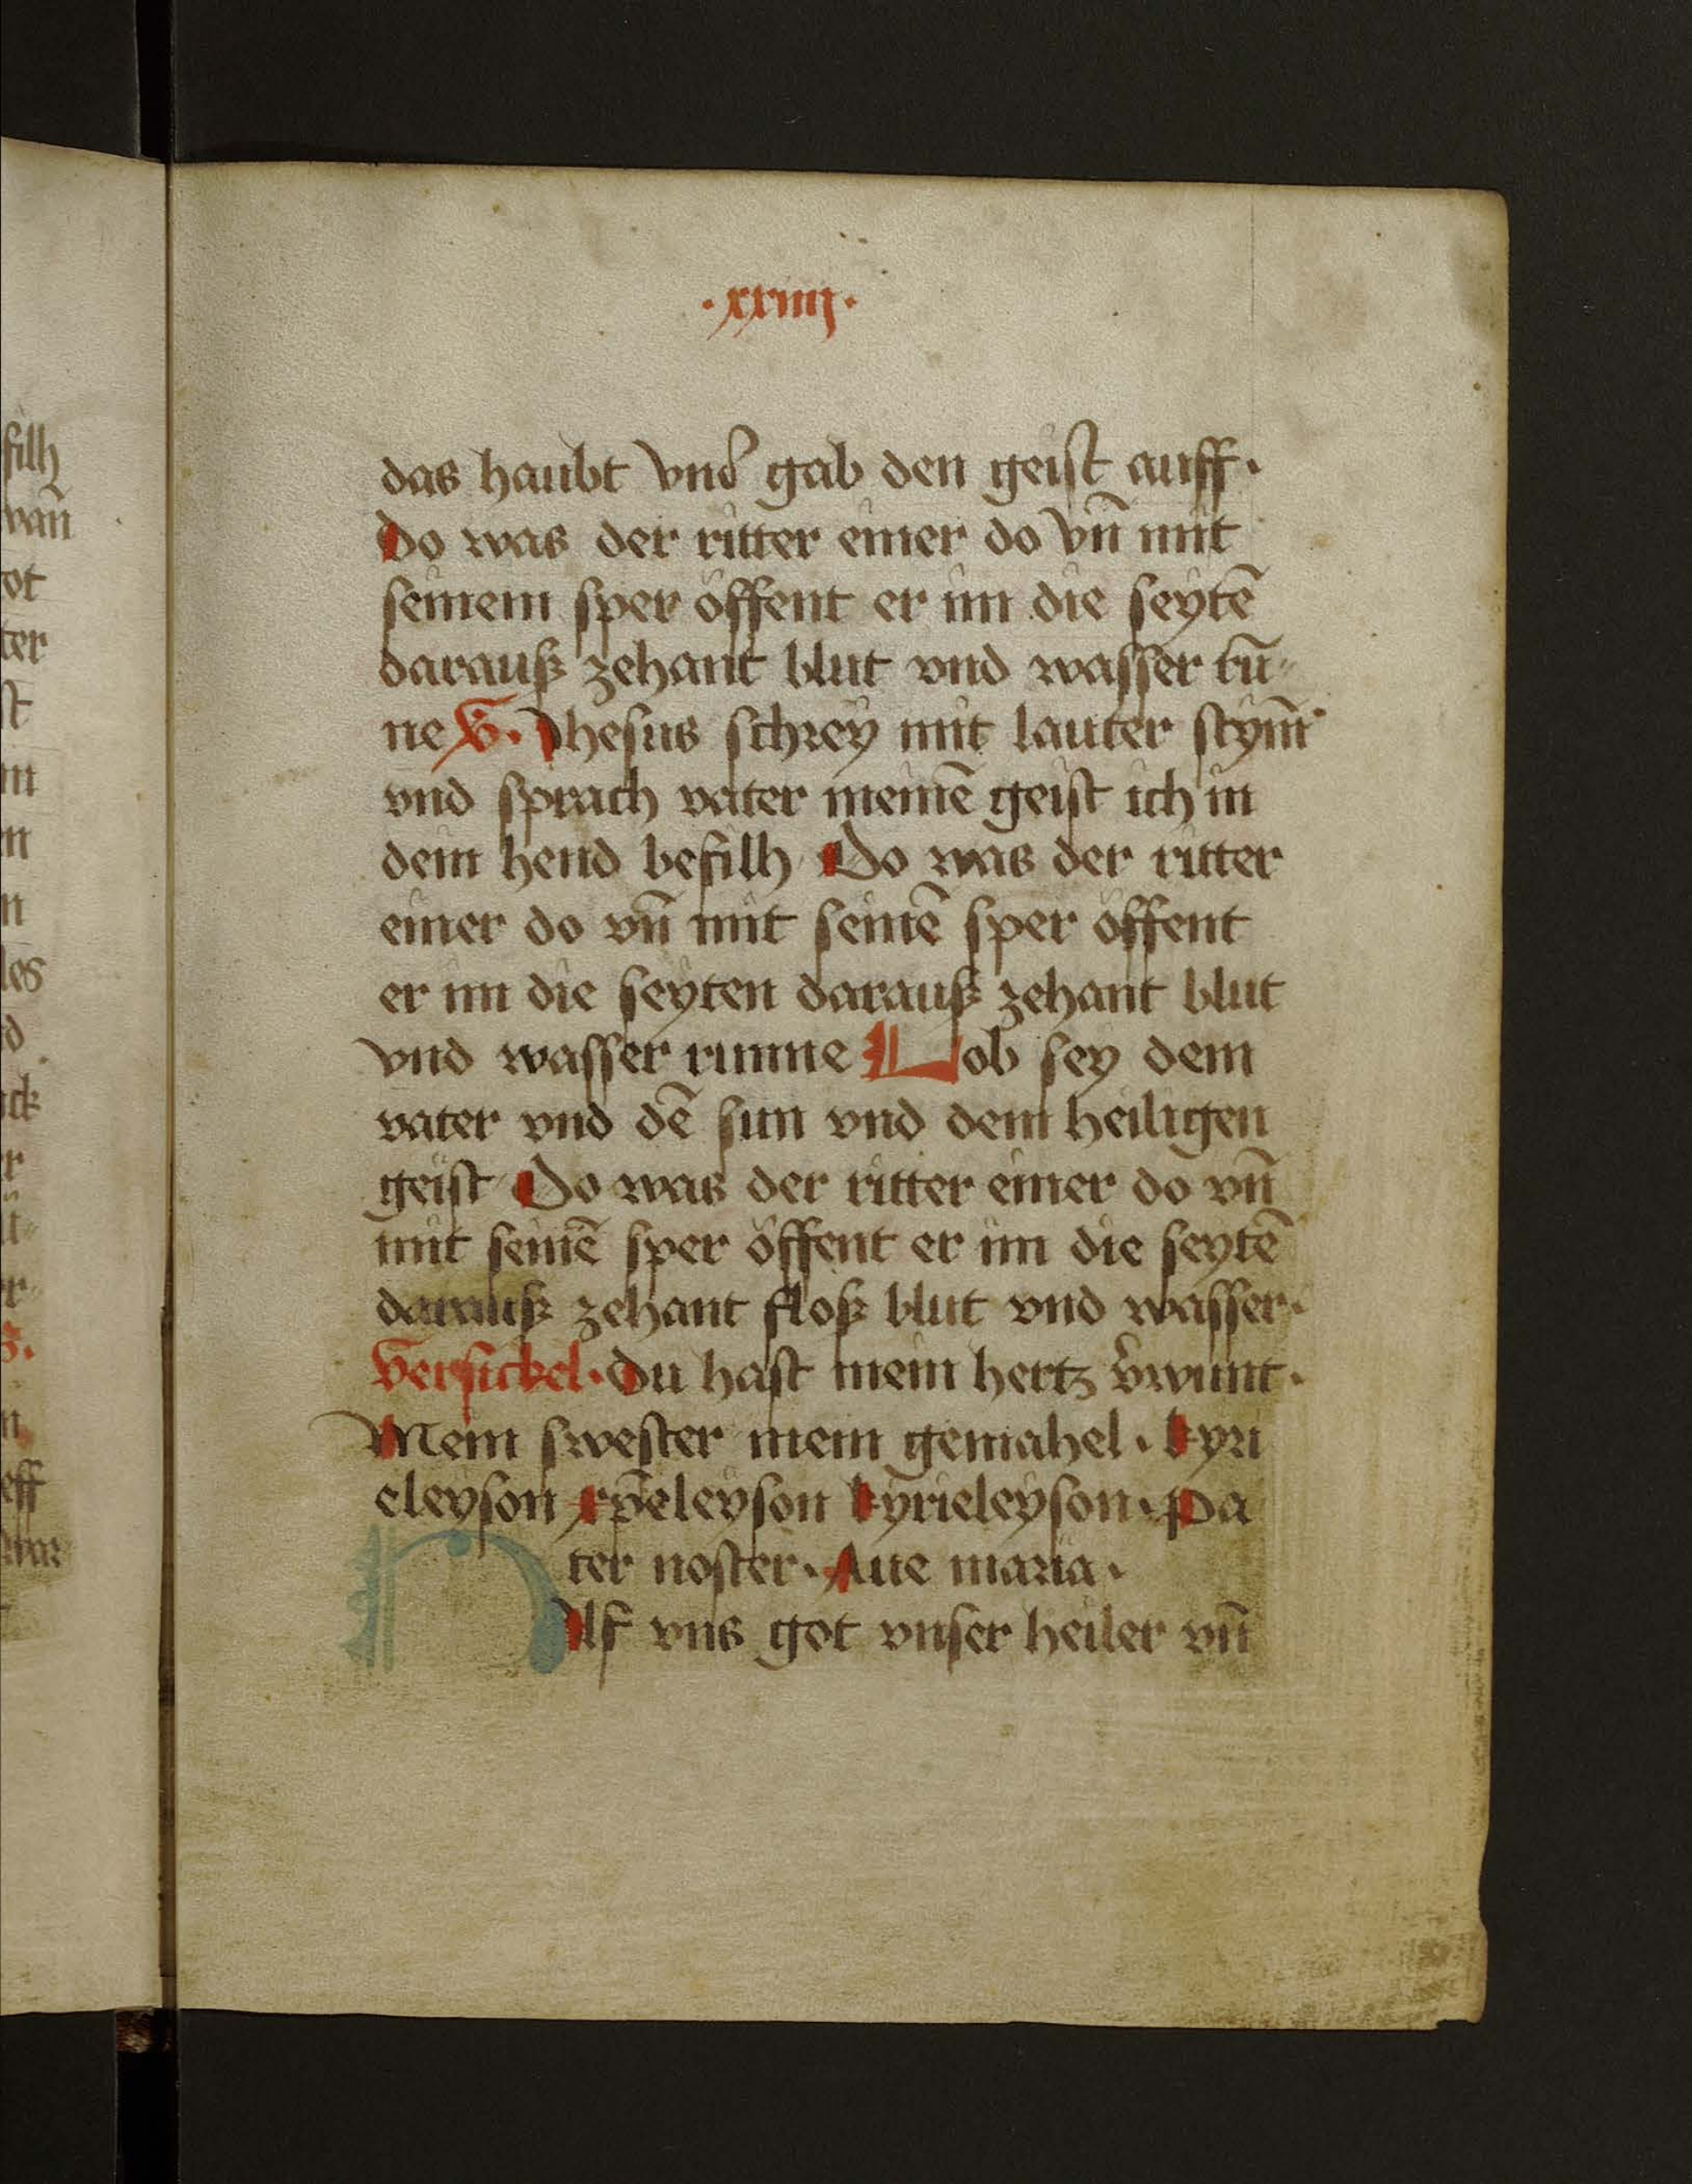 ·xxiiij·
das haubt vnd gab den geist auff·
Do was der ritter einer do vn̄ mit
seinem sper öffent er im die seytē
darauß zehant blut vnd wasser rū-
ne V. Jhesus schrey mit lauter stym̄
vnd sprach vater meinē geist ich in
dein hend befilh Do was der ritter
einer do vn̄ mit seinē sper öffent
er im die seyten darauß zehant blut
vnd wasser runne Lob sey dem
vater vnd dē sun vnd dem heiligen
geist Do was der ritter einer do vn̄
mit seinē sper öffent er im die seytē
darauß zehant floß blut vnd wasser·
Versickel· Du hast mein hertz v̄wunt·
Mein swester mein gemahel· kyri
eleyson xp̄eleyson kyrieleyson· Pa
ter noster· Aue maria·
Hilf vns got vnser heiler vn̄